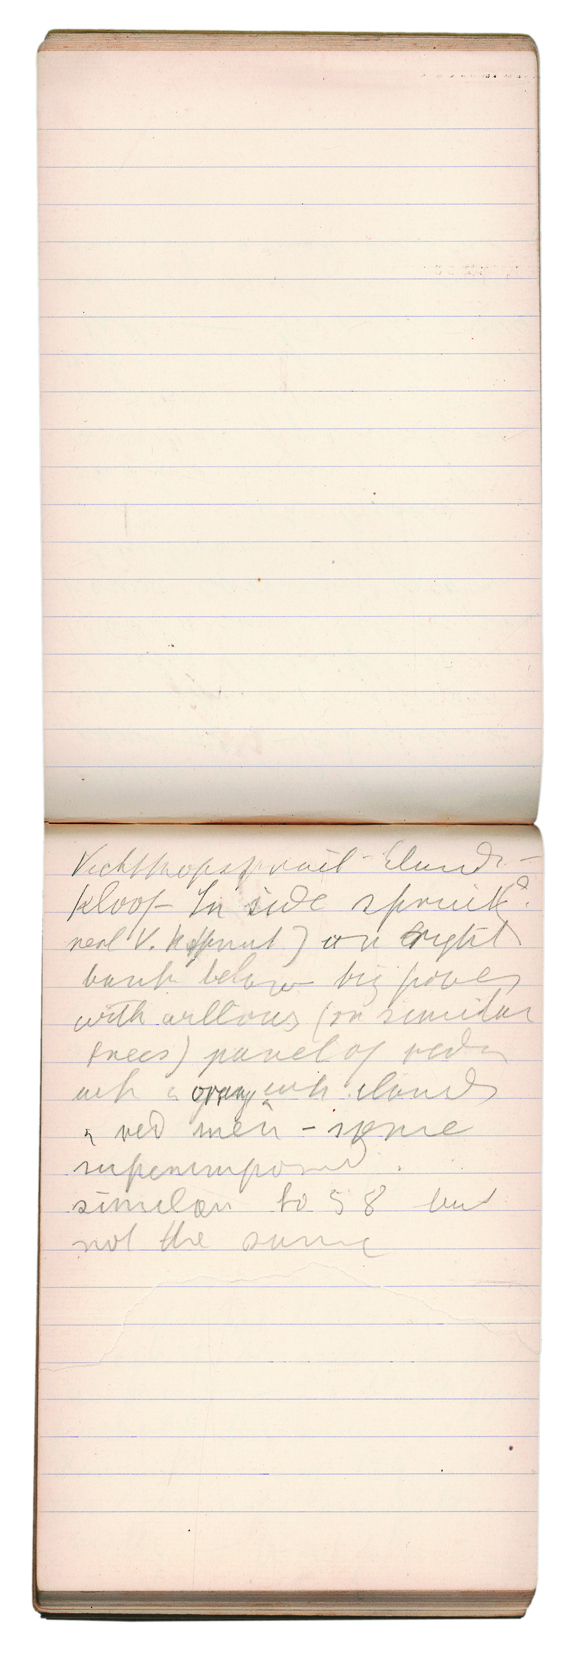 Vechtkopspruit - Elands-
kloof - In side spruit?
near V. Kspruit) on right
bank below big pover
with willows (or similar
trees) panel of red
wh & orange wh elands
& red men - some
superimposed.
similar to 58 but
not the same